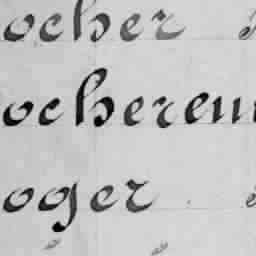 ocher
ochereur
oger